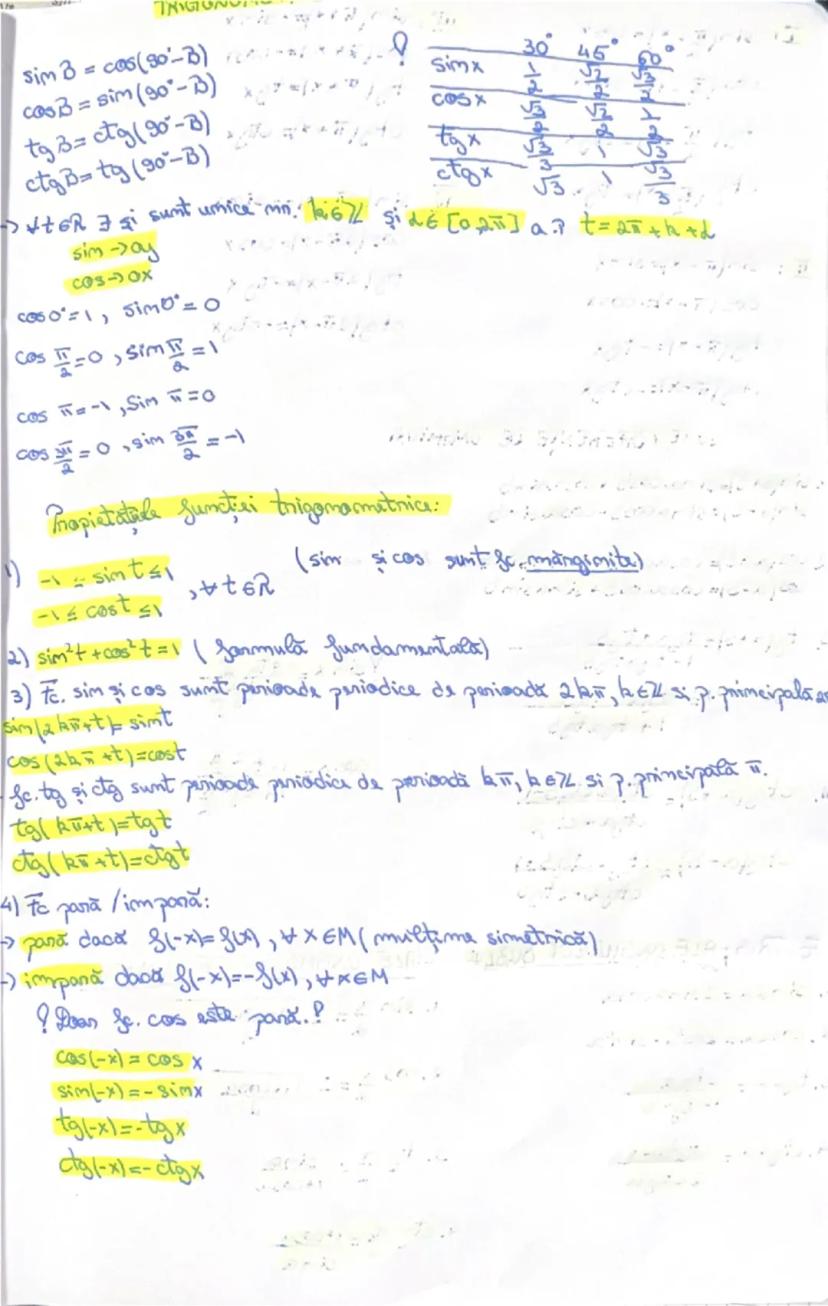 TRIGONOM
sin B = cos(90°-B)
cos B = sin(90°-B)
tg B = ctg(90°-B)
ctg B = tg(90°-B)
30° 45° 60°
sin x 1/2 √2/2 √3/2
cos x √3/2 √2/2 1/2
tg x √3/3 1 √3
ctg x √3 1 √3/3
→ ∀ t∈R ∃ și sunt unice nr. k∈Z și α∈[0,2π] a.î t=2π+k+α
sin → oy
cos → ox
cos 0°=1, sin 0°=0
cos π/2=0, sin π/2=1
cos π=-1, sin π=0
cos 3π/2=0, sin 3π/2=-1
Propietățile funcției trigonometrice:
1) -1 ≤ sin t ≤ 1 (sin și cos sunt fc. mărginite)
-1 ≤ cos t ≤ 1 , ∀ t∈R
2) sin²t+cos²t=1 (formulă fundamentală)
3) Fc. sin și cos sunt perioade periodice de perioadă 2kπ, k∈Z si p. principală
sin(2kπ+t)=sin t
cos(2kπ+t)=cos t
fc. tg și ctg sunt perioade periodice de perioadă kπ, k∈Z si p. principală π.
tg(kπ+t)=tg t
ctg(kπ+t)=ctg t
4) Fc pară / impară:
→ pară dacă f(-x)=f(x), ∀ x∈M (mulțime simetrică)
→ impară dacă f(-x)=-f(x), ∀ x∈M
! Doar fc. cos este pară !
cos(-x) = cos x
sin(-x) = - sin x
tg(-x) = - tg x
ctg(-x) = - ctg x